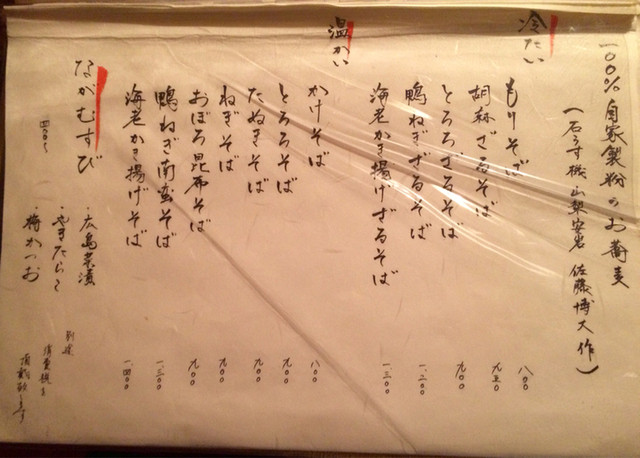 一〇〇%自家製粉のお蕎麦
(石うす機 山梨 佐藤博大作)
冷たい
もりそば 八〇〇
胡麻ざるそば 九五〇
とろろざるそば 九〇〇
鴨ねぎざるそば 一、二〇〇
海老かき揚げざるそば 一、三〇〇
温かい
かけそば 八〇〇
とろろそば 九〇〇
たぬきそば 九〇〇
ねぎそば 九〇〇
おぼろ昆布そば 九〇〇
鴨ねぎ南蛮そば 一、三〇〇
海老かき揚げそば 一、四〇〇
ながむすび
・広島菜漬
・やきたらこ
・梅かつお
別途
消費税を
頂戴致します